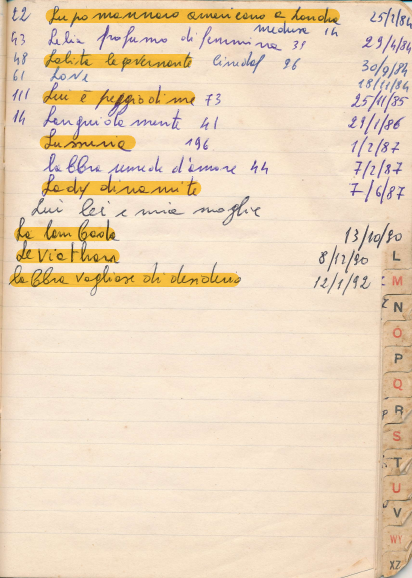 22 Lupo mannaro americano a Londra 25/2/84
medusa 14
43 Lelia profumo di femmina 31 29/4/84
48 Lolita le governante Cinedaf 96 30/9/84
61 Love 18/11/84
111 Lui è peggio di me 73 25/11/85
14 Languidamente 41 29/1/86
Lussuria 196 1/2/87
labbra umide d'amore 44 7/2/87
Lady dinamite 7/6/87
Lui lei e mia moglie
La lambada 13/10/90
Leviathan 8/12/90
labbra vogliose di desiderio 12/1/92
L
M
N
O
P
Q
R
S
T
U
V
W
XZ